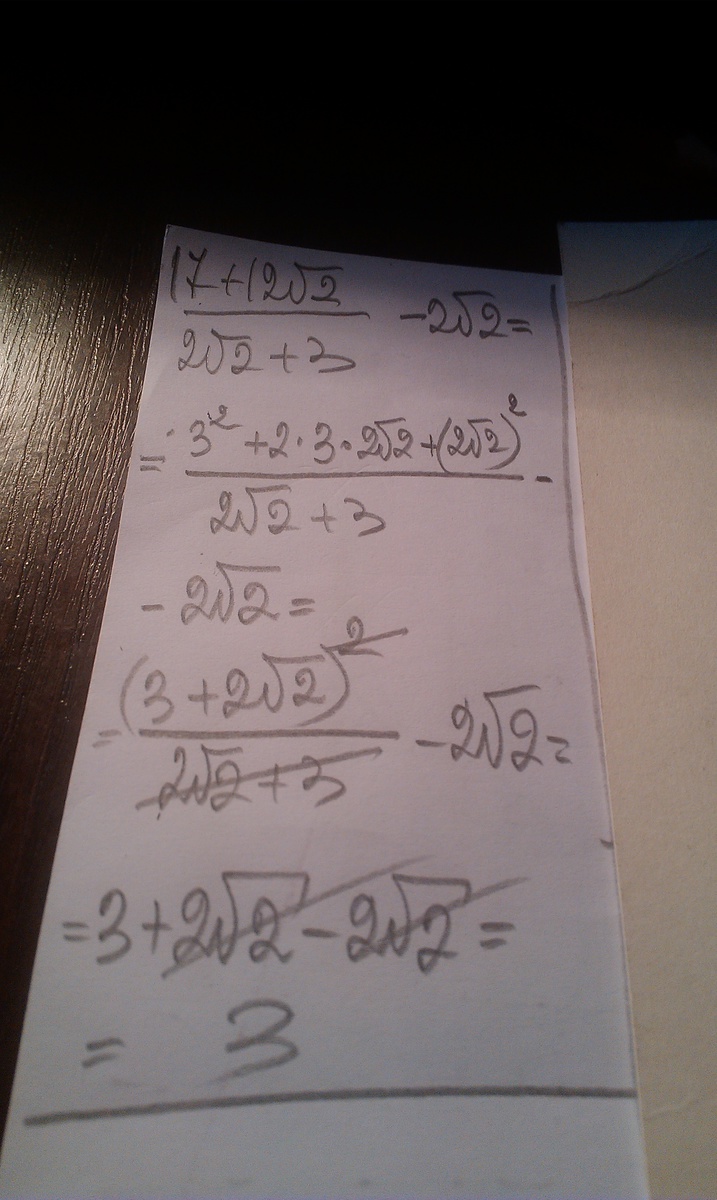 17+12√2
―――― -2√2=
2√2+3
= 3² +2·3·2√2+(2√2)²
―――― -
2√2+3
- 2√2=
= (3+2√2)²
―――― -2√2=
2√2+3
=3+2√2-2√2=
= 3